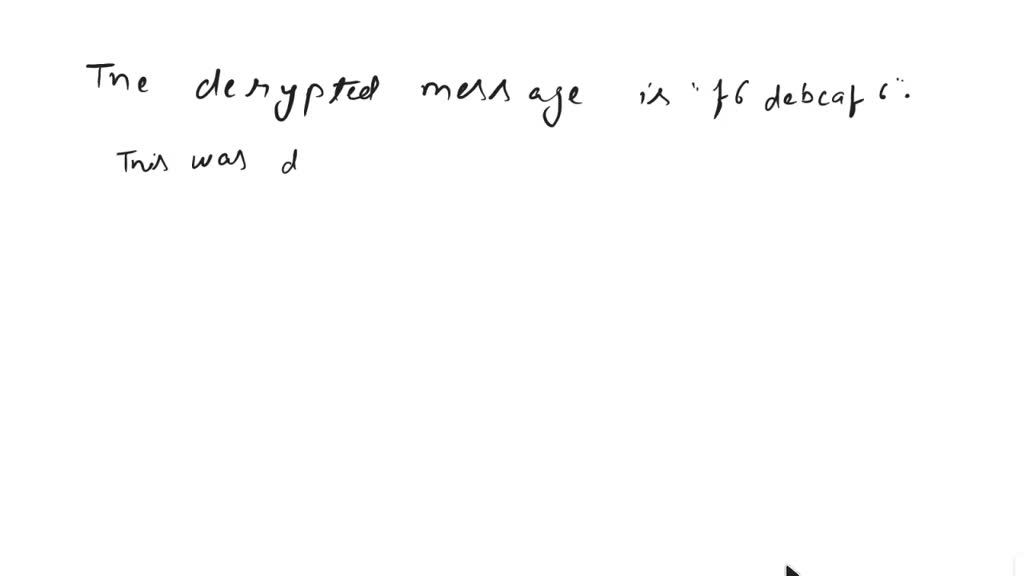 The decrypted message is "f6 debcaf 6".
This was d